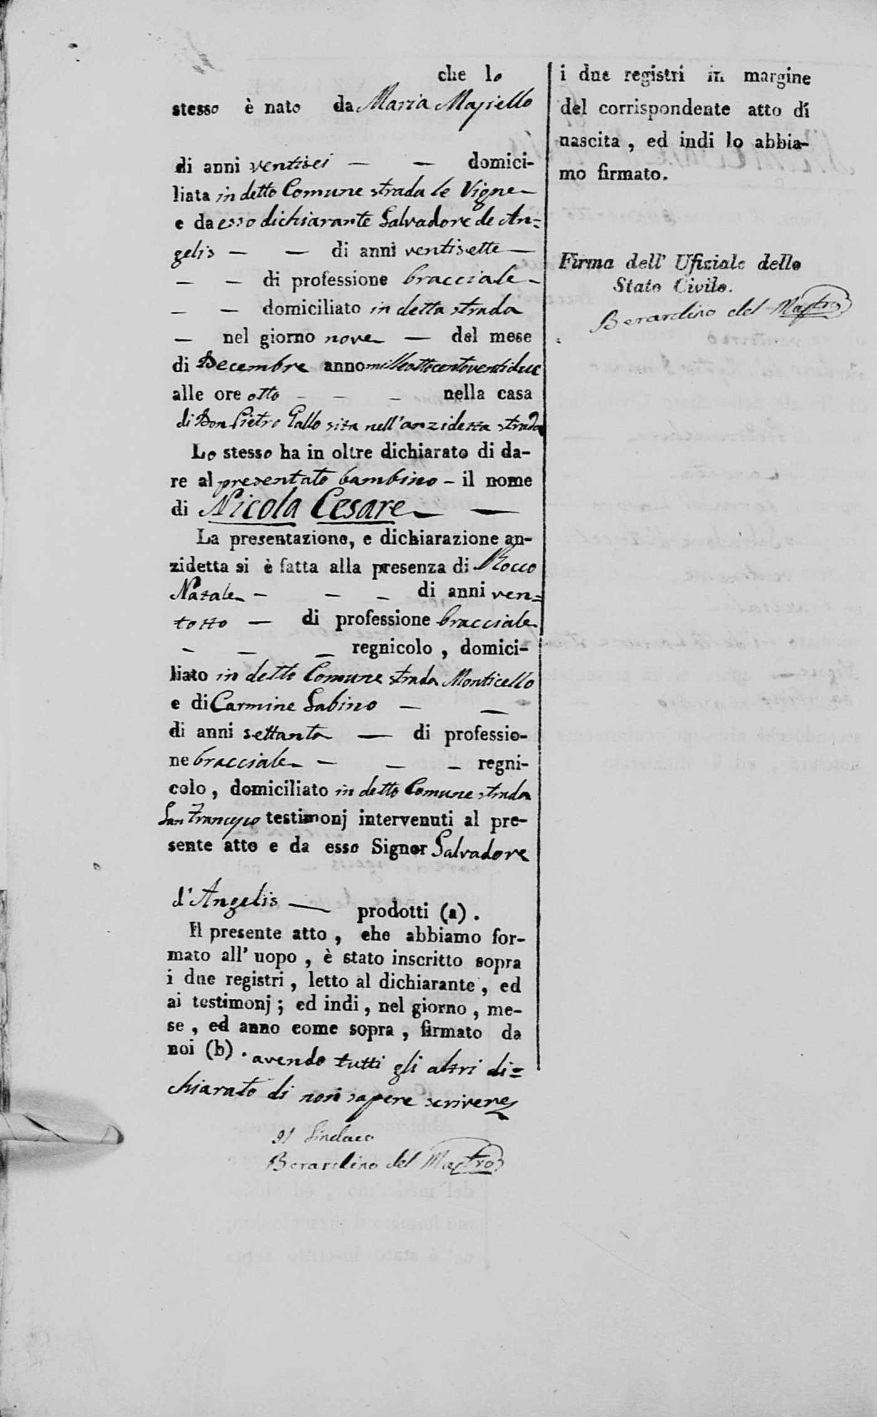 che lo
stesso è nato da Maria Masiello
di anni ventisei — — domici-
liata in detto Comune strada le Vigne —
e da esso dichiarante Salvadore de An=
gelis — — di anni ventisette —
— — di professione bracciale —
— — domiciliato in detta strada
— nel giorno nove — del mese
di Decembre anno milleottocentoventidue
alle ore otto — — — nella casa
di Don Pietro Gallo sita nell'anzidetta strada
Lo stesso ha in oltre dichiarato di da-
re al presentato bambino — il nome
di Nicola Cesare — —
La presentazione, e dichiarazione an-
zidetta si è fatta alla presenza di Rocco
Natale — — — di anni ven=
totto — di professione bracciale
— — — regnicolo, domici-
liato in detto Comune strada Monticello
e di Carmine Sabino — —
di anni settanta — di professio-
ne bracciale — — — regni-
colo, domiciliato in detto Comune strada
San Francesco testimonj intervenuti al pre-
sente atto e da esso Signor Salvadore
d'Angelis — prodotti (a).
Il presente atto, che abbiamo for-
mato all'uopo, è stato inscritto sopra
i due registri, letto al dichiarante, ed
ai testimonj; ed indi, nel giorno, me-
se, ed anno come sopra, firmato da
noi (b). avendo tutti gli altri di=
chiarato di non sapere scrivere
Il Sindaco
Berardino del Mastro
i due registri in margine
del corrispondente atto di
nascita, ed indi lo abbia-
mo firmato.
Firma dell' Ufiziale dello
Stato Civile.
Berardino del Mastro